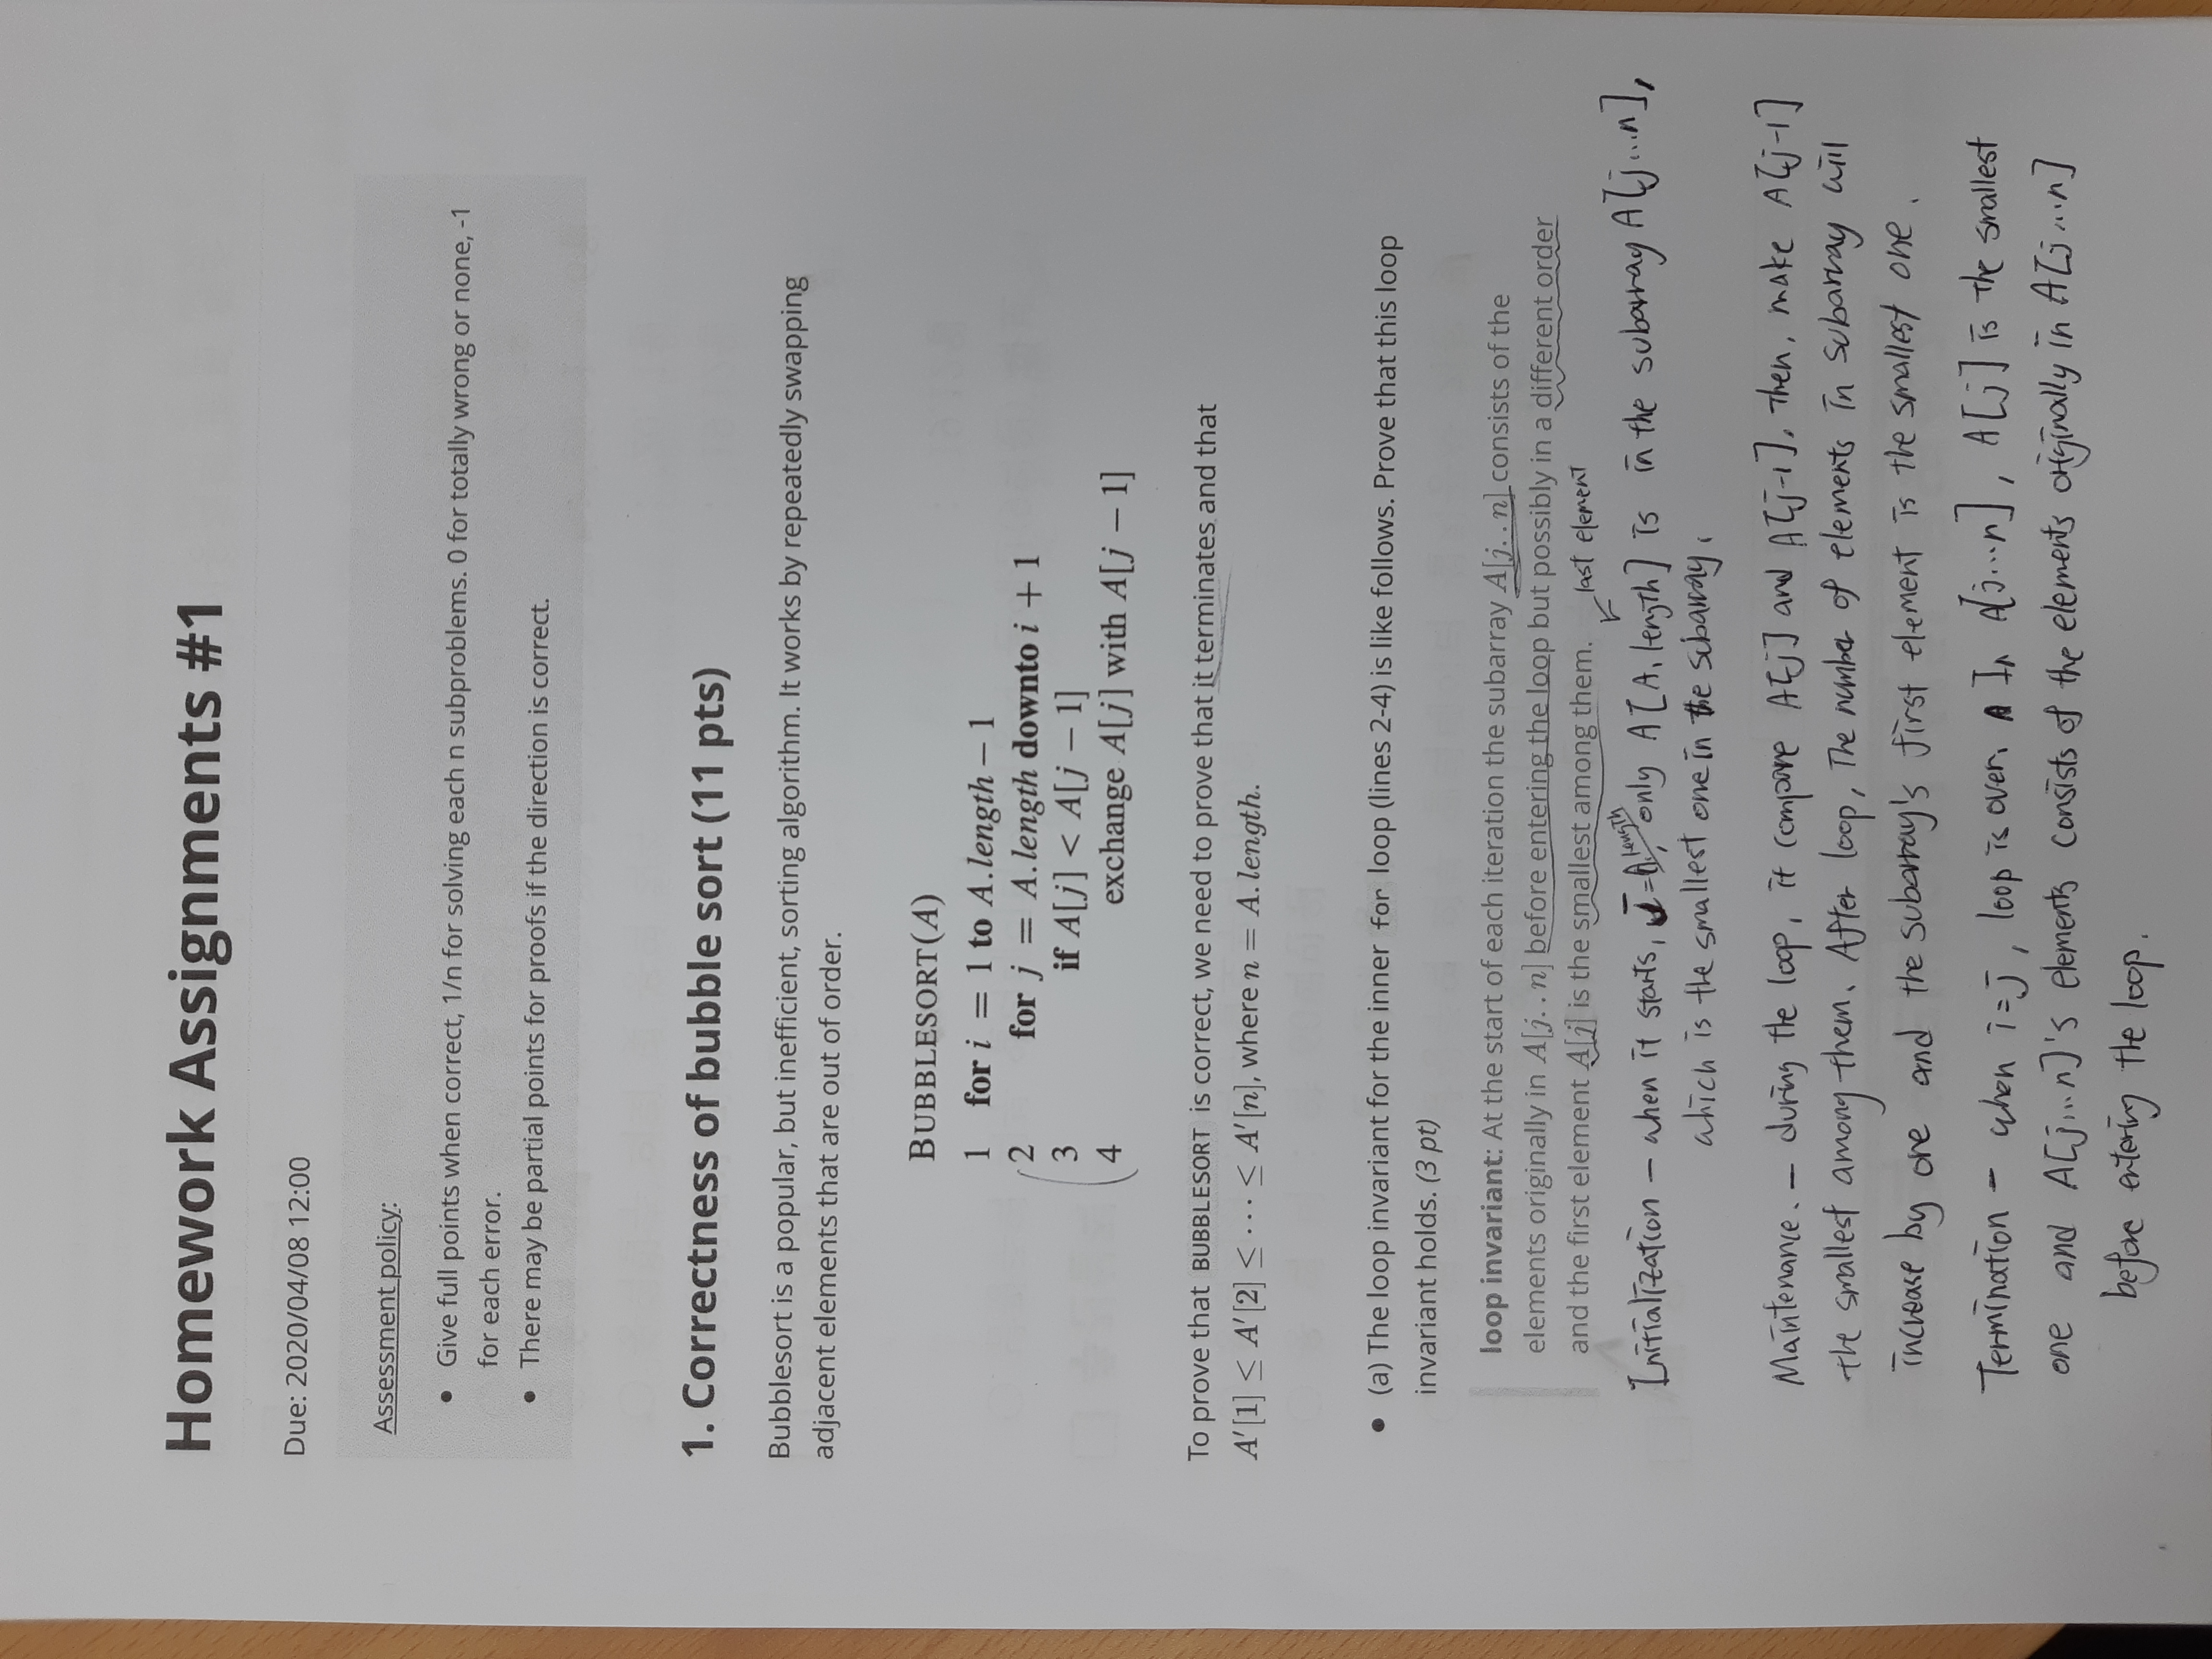 Homework Assignments #1
Due: 2020/04/08 12:00
Assessment policy:
• Give full points when correct, 1/n for solving each n subproblems. 0 for totally wrong or none, -1
for each error.
• There may be partial points for proofs if the direction is correct.
1. Correctness of bubble sort (11 pts)
Bubblesort is a popular, but inefficient, sorting algorithm. It works by repeatedly swapping
adjacent elements that are out of order.
BUBBLESORT(A)
1 for i = 1 to A.length − 1
2 for j = A.length downto i + 1
3 if A[j] < A[j − 1]
4 exchange A[j] with A[j − 1]
To prove that BUBBLESORT is correct, we need to prove that it terminates and that
A′[1] ≤ A′[2] ≤ ⋯ ≤ A′[n], where n = A.length.
• (a) The loop invariant for the inner for loop (lines 2-4) is like follows. Prove that this loop
invariant holds. (3 pt)
loop invariant: At the start of each iteration the subarray A[j..n] consists of the
elements originally in A[j..n] before entering the loop but possibly in a different order
and the first element A[j] is the smallest among them.
last element
Initialization – when it starts, J=A.length, only A[A.length] is in the subarray A[j...n],
which is the smallest one in the subarray.
Maintenance. – during the loop, it compare A[j] and A[j-1]. Then, make A[j-1]
the smallest among them. After loop, The number of elements in subarray will
increase by one and the subarray's first element is the smallest one.
Termination – when i=j, loop is over. In A[j...n], A[j] is the smallest
one and A[j...n]'s elements consists of the elements originally in A[j...n]
before entering the loop.